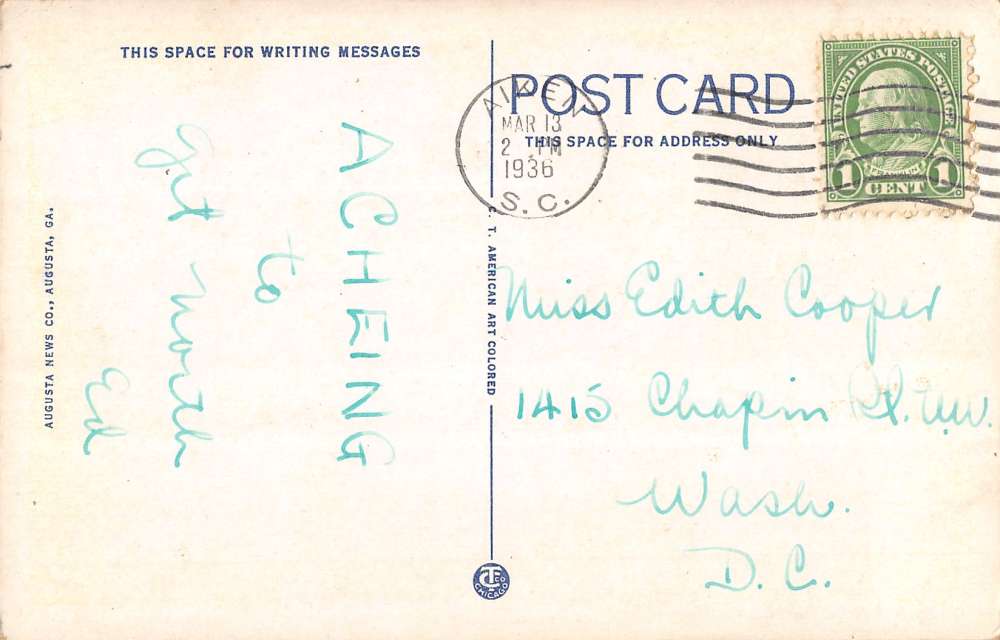 THIS SPACE FOR WRITING MESSAGES
ACHEING
to
Get North
Ed
AUGUSTA NEWS CO., AUGUSTA, GA.
C. T. AMERICAN ART COLORED
CHICAGO
POST CARD
THIS SPACE FOR ADDRESS ONLY
AIKEN
MAR 13
2 PM
1936
S. C.
UNITED STATES POSTAGE
FRANKLIN
1 CENT 1
Miss Edith Cooper
1415 Chapin St. N.W.
Wash.
D. C.